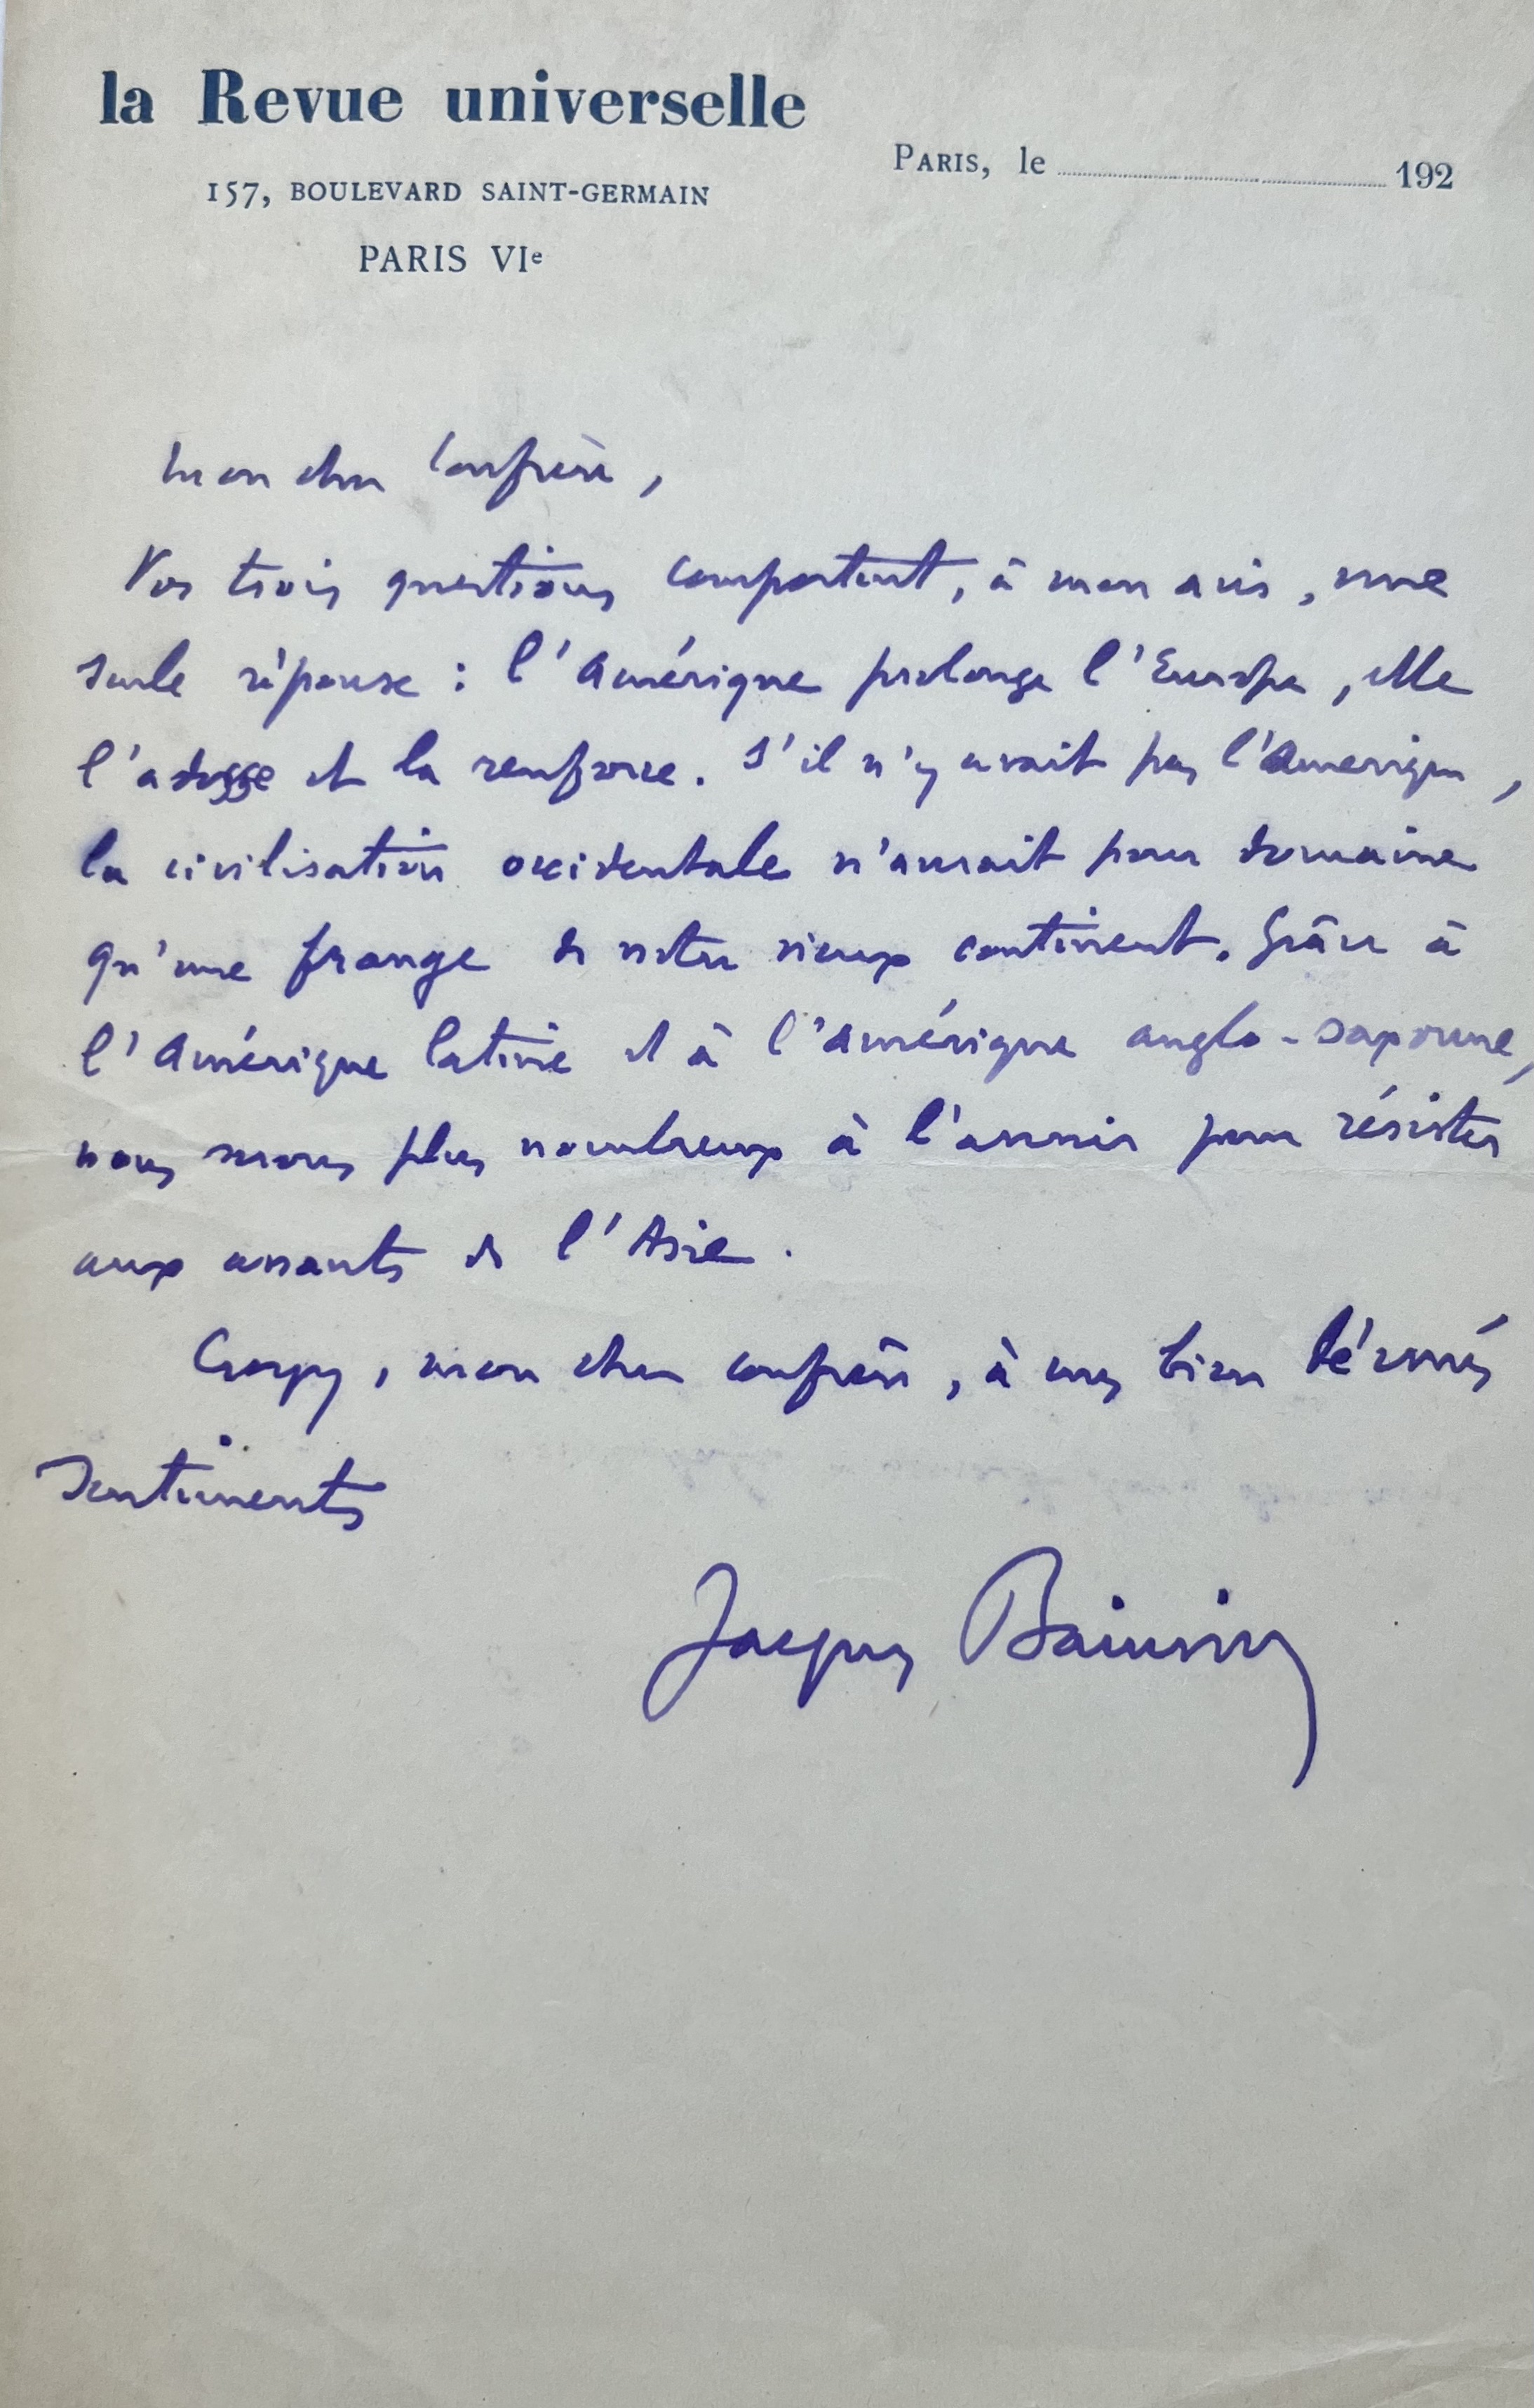 la Revue universelle
157, BOULEVARD SAINT-GERMAIN
PARIS VIe
PARIS, le 192
Mon cher Confrère,
Vos trois questions comportent, à mon avis, une
seule réponse : l'Amérique prolonge l'Europe, elle
l'adosse et la renforce. S'il n'y avait pas l'Amérique,
la civilisation occidentale n'aurait pour domaine
qu'une frange de notre vieux continent. Grâce à
l'Amérique latine et à l'Amérique anglo-saxonne,
nous serons plus nombreux à l'avenir pour résister
aux assauts de l'Asie.
Croyez, mon cher confrère, à mes bien dévoués
sentiments
Jacques Bainville